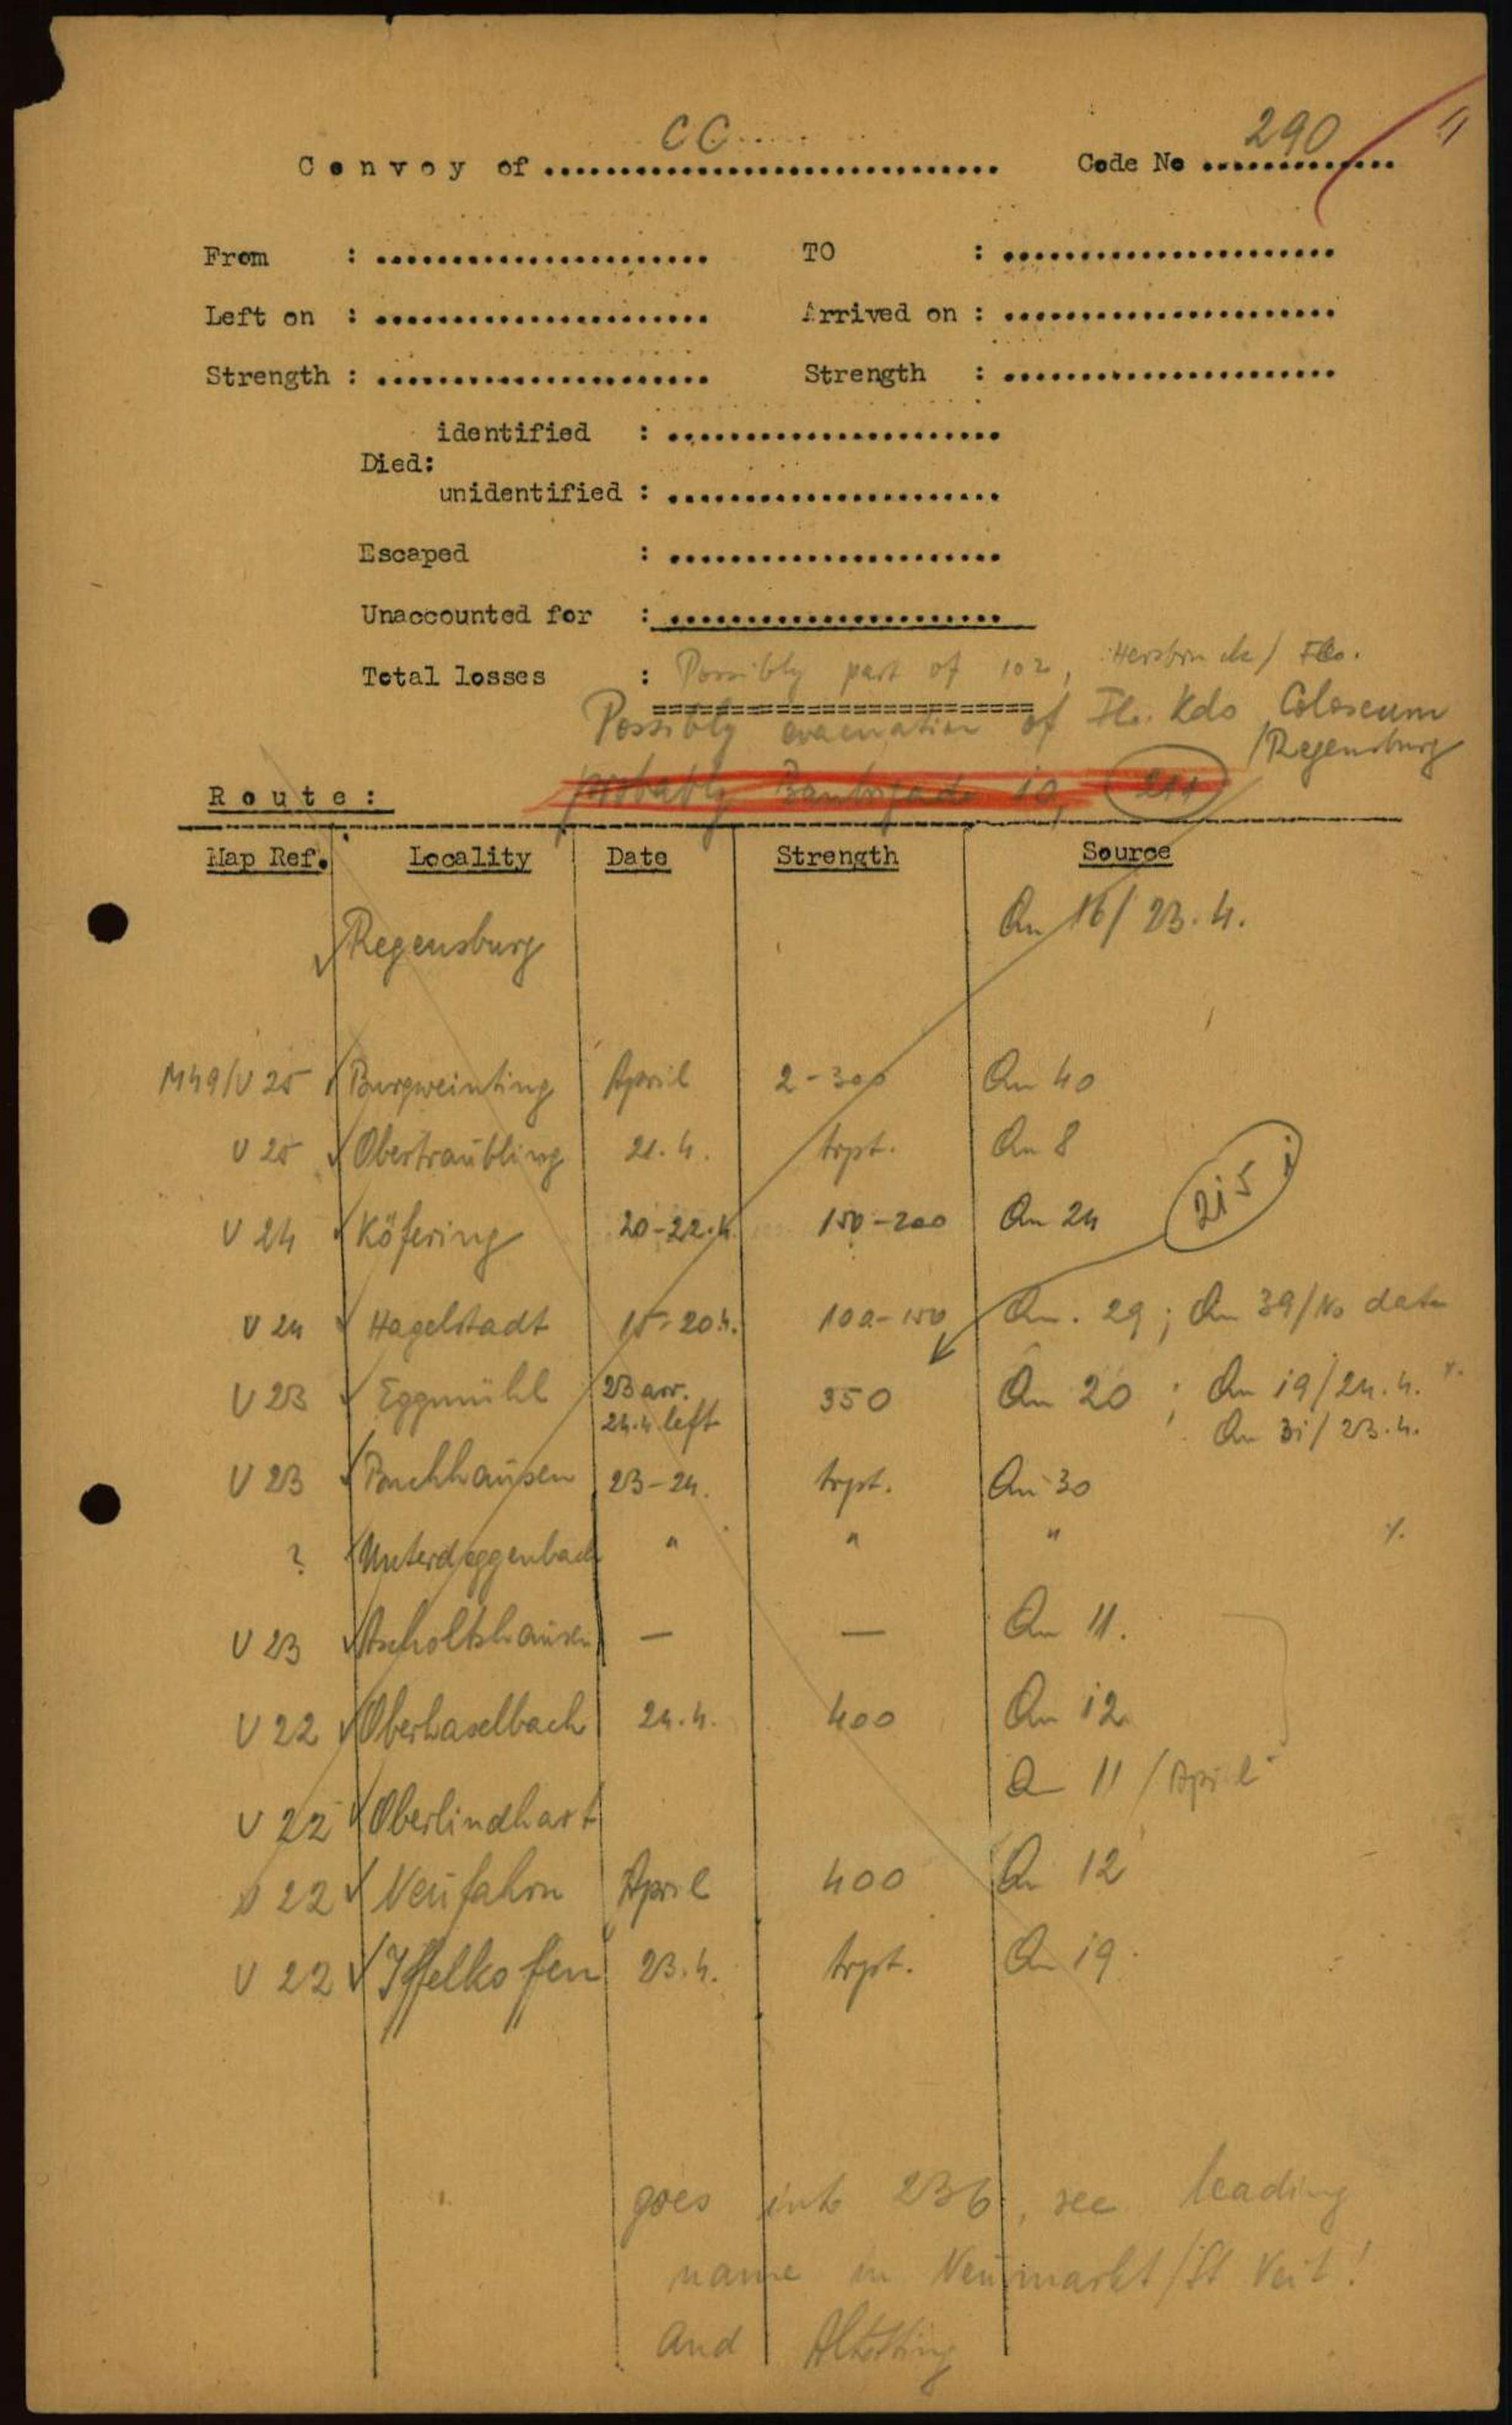 Convoy of ..... CC ..... Code No ..... 290 .....
From : ..... TO : .....
Left on : ..... Arrived on : .....
Strength : ..... Strength : .....
identified : .....
Died:
unidentified : .....
Escaped : .....
Unaccounted for : .....
Total losses : Possibly part of 102, Hersbruck / Flo.
Possibly evacuation of Flo. Kdo Coloseum
/ Regensburg
Route: probably Baubrigade 10, 211
Map Ref. Locality Date Strength Source
Regensburg An 16/ 23.4.
M49/V 25 Burgweinting April 2-300 An 40
V 25 Obertraubling 21.4. trpt. An 8
V 24 Köfering 20-22.4. 150-200 An 24
215
V 24 Hagelstadt 15-20.4. 100-150 An. 29; An 39/No date
V 23 Eggmühl 23 arr. 350 An 20 ; An 19/24.4.
24.4. left An 31/ 23.4.
V 23 Buchhausen 23-24. trpt. An 30
? Unterdeggenbach " " "
V 23 Ascholtshausen — — An 11.
V 22 Oberhaselbach 24.4. 400 An 12
An 11 / April
V 22 Oberlindhart
V 22 Neufahrn April 400 An 12
V 22 Iffelkofen 23.4. trpt. An 19.
goes into 236, see leading
name in Neumarkt/St Veit!
And Altötting